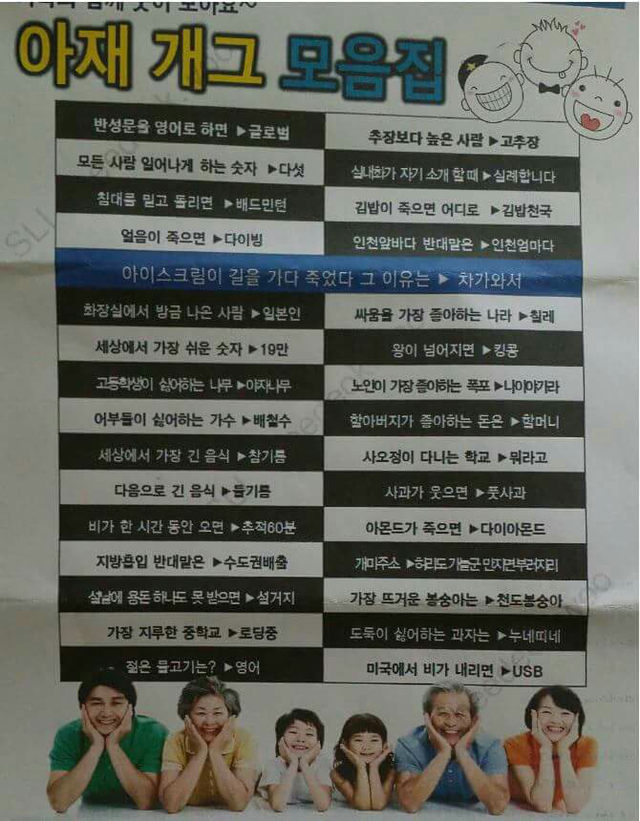 함께 웃어 보아요~
아재 개그 모음집
반성문을 영어로 하면 ▶글로벌
추장보다 높은 사람 ▶고추장
모든 사람 일어나게 하는 숫자 ▶다섯
실내화가 자기 소개 할 때 ▶실례합니다
침대를 밀고 돌리면 ▶배드민턴
김밥이 죽으면 어디로 ▶김밥천국
얼음이 죽으면 ▶다이빙
인천앞바다 반대말은 ▶인천엄마다
아이스크림이 길을 가다 죽었다 그 이유는 ▶ 차가와서
화장실에서 방금 나온 사람 ▶일본인
싸움을 가장 좋아하는 나라 ▶칠레
세상에서 가장 쉬운 숫자 ▶19만
왕이 넘어지면 ▶킹콩
고등학생이 싫어하는 나무 ▶야자나무
노인이 가장 좋아하는 폭포 ▶나이야가라
어부들이 싫어하는 가수 ▶배철수
할아버지가 좋아하는 돈은 ▶할머니
세상에서 가장 긴 음식 ▶참기름
사오정이 다니는 학교 ▶뭐라고
다음으로 긴 음식 ▶들기름
사과가 웃으면 ▶풋사과
비가 한 시간 동안 오면 ▶추적60분
아몬드가 죽으면 ▶다이아몬드
지방흡입 반대말은 ▶수도권배출
개미주소 ▶허리도가늘군 만지면부러지리
설날에 용돈 하나도 못 받으면 ▶설거지
가장 뜨거운 봉숭아는 ▶천도봉숭아
가장 지루한 중학교 ▶로딩중
도둑이 싫어하는 과자는 ▶누네띠네
젊은 물고기는? ▶영어
미국에서 비가 내리면 ▶USB